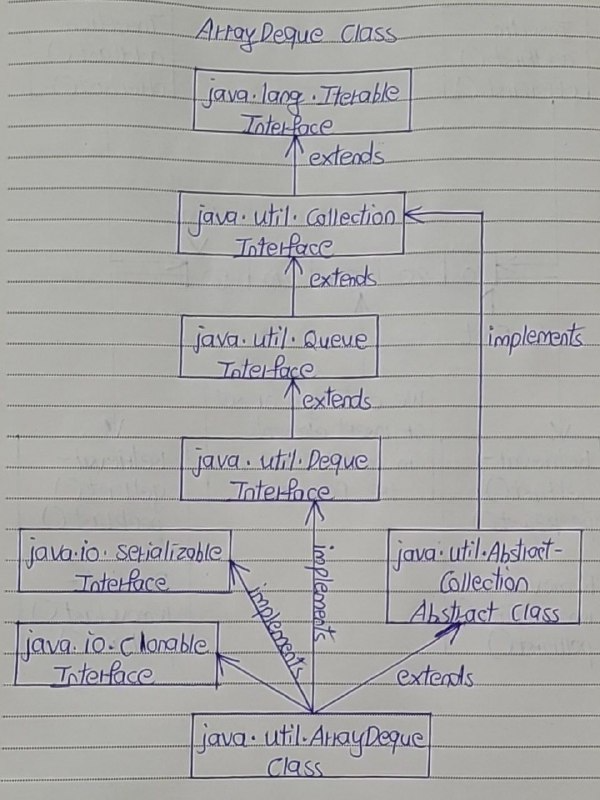 ArrayDeque Class
java.lang.Iterable
Interface
extends
java.util.Collection
Interface
extends
implements
java.util.Queue
Interface
extends
java.util.Deque
Interface
java.io.serializable
Interface
implements
implements
java.util.Abstract-
Collection
Abstract Class
java.io.Clonable
Interface
extends
java.util.ArrayDeque
Class